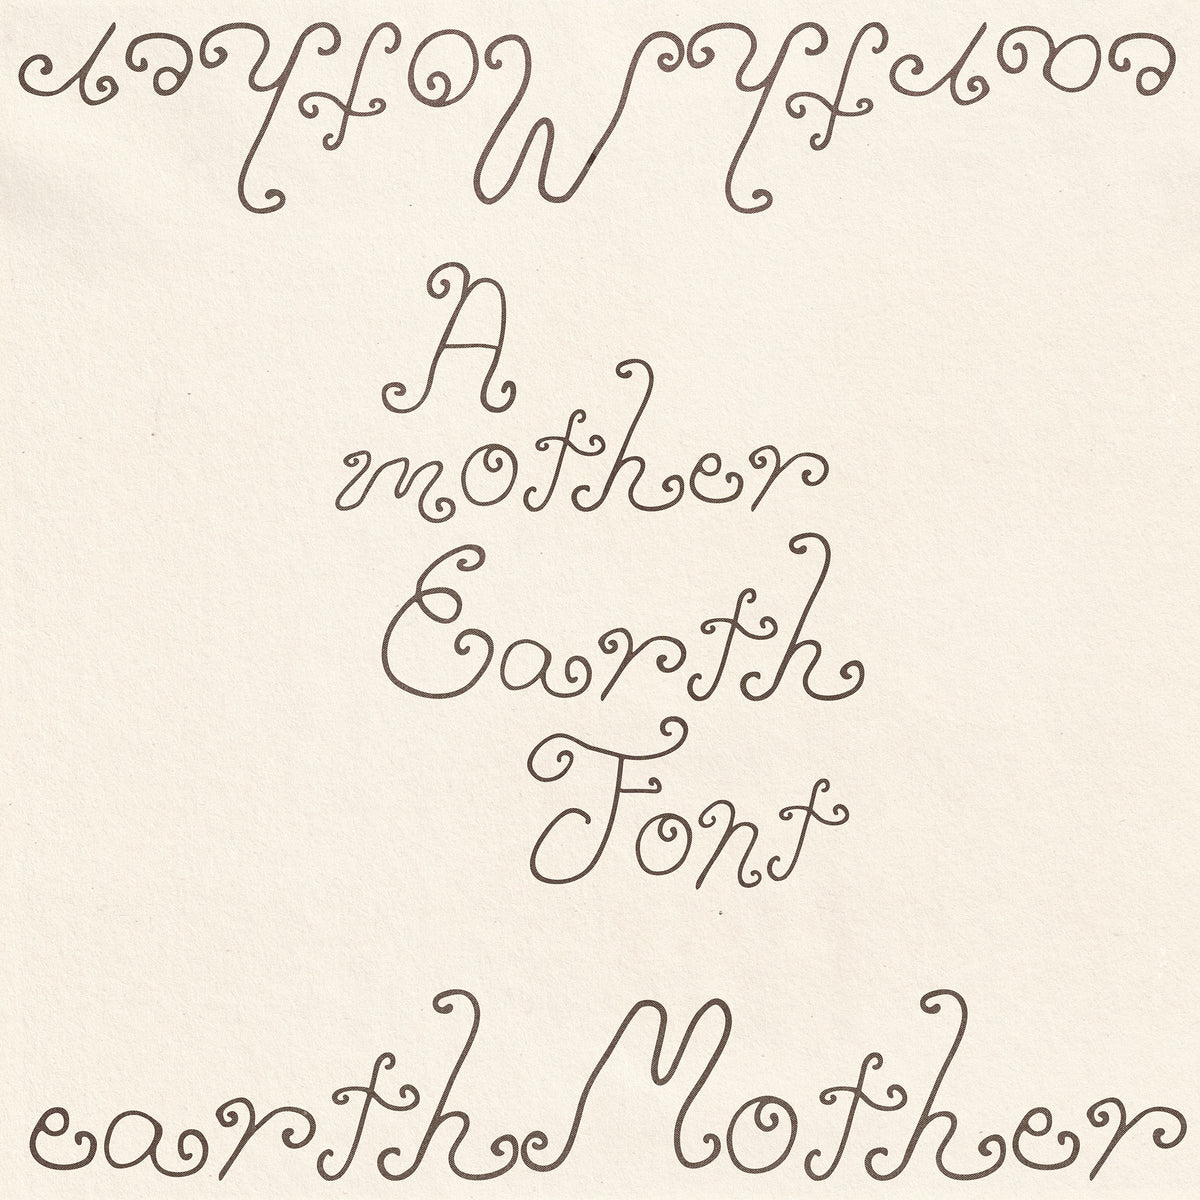 earth Mother
A
mother
Earth
Font
earth Mother